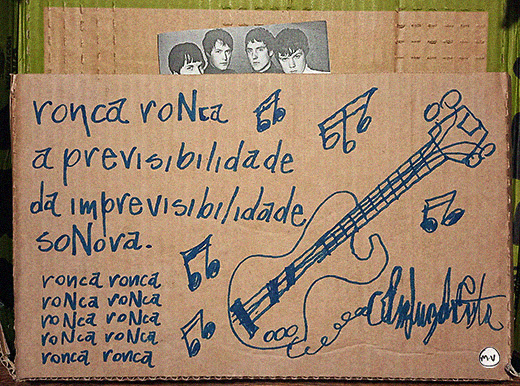 ronca roNca
a previsibilidade
da imprevisibilidade
soNova.
ronca ronca
roNca roNca
roNca roNca
roNca roNca
ronca ronca
M.V